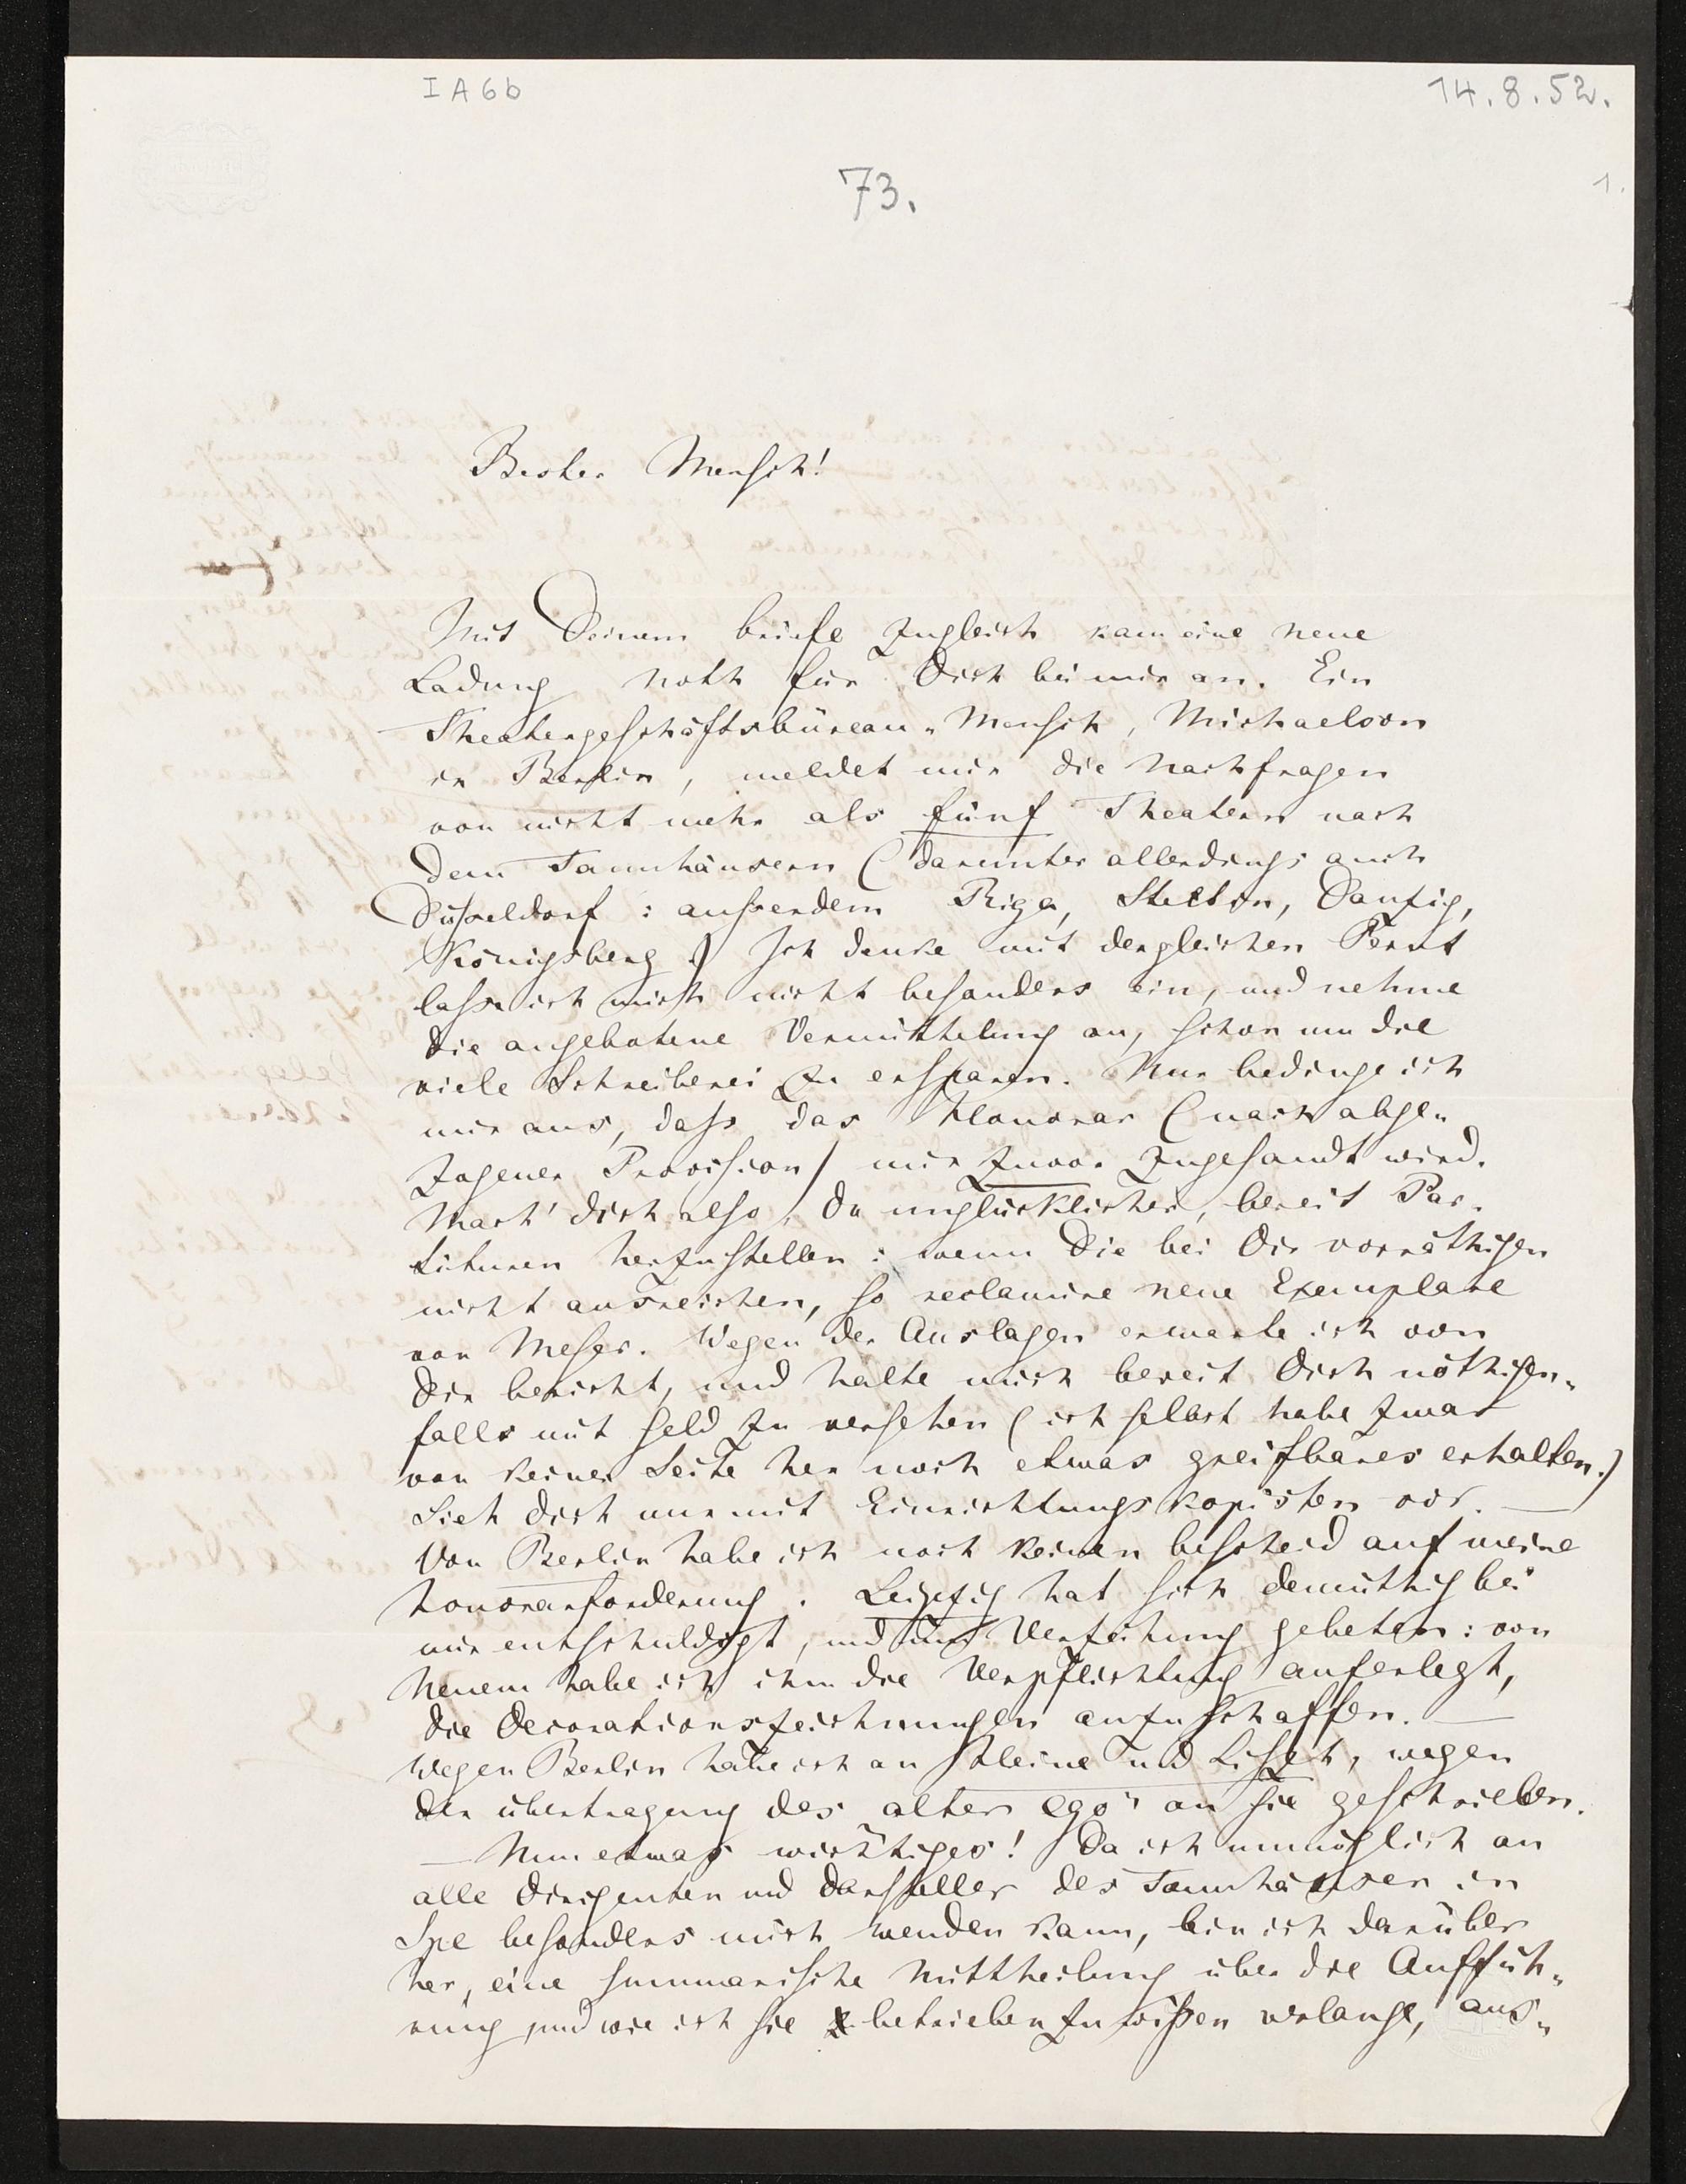 I A 6 b
14.8.52.
73.
1.
Bester Mensch!
Mit Deinem briefe zugleich kam eine neue
Ladung noth für Dich bei mir an. Ein
Theatergeschäftsbüreau-Mensch, Michaelson
in Berlin, meldet mir die Nachfragen
von nicht mehr als fünf Theatern nach
dem Tannhäusern (darunter allerdings auch
Düsseldorf: ausserdem Riga, Stettin, Danzig,
Königsberg.) Ich denke mit dergleichen
lasse ich mich nicht besonders ein, und nehme
die angebotene Vermittelung an, schon um die
viele Schreiberei zu ersparen. Nur bedinge ich
mir aus, dass das Honorar (nach abge-
zogener Provision) mir zuvor zugesandt wird.
Mach' dich also, du unglücklicher, bereit Par-
tituren herzustellen: wenn die bei Dir vorräthigen
nicht ausreichen, so reclamire neue Exemplare
von Meser. Wegen der Auslagen erwarte ich von
Dir bericht, und halte mich bereit Dich nöthigen-
falls mit geld zu versehen (ich selbst habe zwar
von keiner Seite her noch etwas greifbares erhalten.)
Sieh dich nur mit Einrichtungskopisten vor. —
Von Berlin habe ich noch keinen bescheid auf meine
honorarforderung. Leipzig hat sich demüthig bei
mir entschuldigt, und um Verzeihung gebeten: von
Neuem habe ich ihm die Verpflichtung auferlegt,
die Decorationszeichnungen anzuschaffen. —
Wegen Berlin habe ich an Kleine und Liszt, wegen
der übertragung des „alter ego" an sie geschrieben.
— Nun etwas wichtiges! Da ich unmöglich an
alle Dirigenten und Darsteller des Tannhäuser in
Spe besonders mich wenden kann, bin ich darüber
her, eine summarische Mittheilung über die Auffüh-
rung, und wie ich sie betrieben zu wissen verlange, aus-